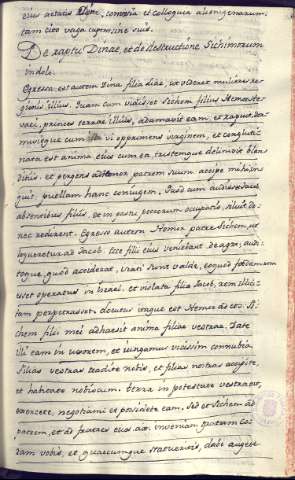 eius aetatis
commia et colloquia alienigenarum
tam cito vaga cupivisse suis.
De raptu Dinae, et de destructione Sichimorum
indole.
Egressa est autem Dina filia Liae, ut videret mulieres re-
gionis illius. Quam cum vidisset Sichem filius Hemor He-
vaei, princeps terrae illius, adamavit eam, et rapuit, dor-
mivitque cum illa vi opprimens virginem, et conglutinata
nata est anima eius cum ea, tristemque delinivit blan-
ditiis, et pergens ad Hemor patrem suum, accipe mihi in-
quit, puellam hanc coniugem. Quod cum audisset Jacob
absentibus filiis, et in pastu pecorum occupatis, siluit do-
nec redirent. Egresso autem Hemor patre Sichem, ut
loqueretur ad Jacob. Ecce filii eius veniebant de agro, audi-
toque, quod acciderat, irati sunt valde, eo quod foedam rem
esset operatus in Israel, et violata filia Jacob, rem illici-
tam perpetrasset. Locutus itaque est Hemor ad eos. Si-
chem filii mei adhaesit anima filiae vestrae. Date
illi eam in uxorem, et iungamus vicissim connubia.
Filias vestras tradite nobis, et filias nostras accipite,
et habitate nobiscum. terra in potestate vestra est,
exercete, negotiamini et possidete eam. Sed et Sichem ad
patrem, et ad fratres eius ait. inveniam gratiam co-
ram vobis, et quaecumque statueritis, dabo augete